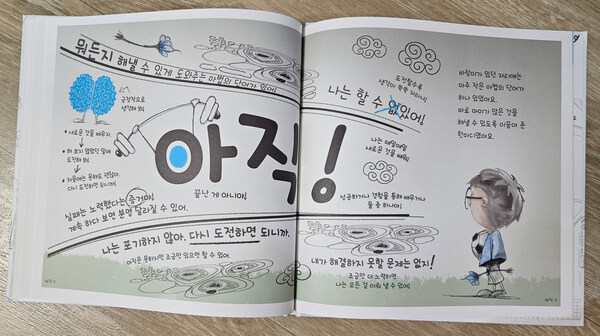 뭐든지 해낼 수 있게 도와주는 마법의 단어가 있어!
긍정적으로
생각해 봐!
• 새로운 것을 배우자.
• 해 보지 않았던 일에
도전해 봐!
• 처음에는 못해도 괜찮아.
다시 도전하면 되니까!
아직!
끝난 게 아니야!
실패는 노력했다는 증거야!
계속 하다 보면 분명 달라질 수 있어.
나는 포기하지 않아. 다시 도전하면 되니까.
아직은 못하지만 조금만 있으면 할 수 있어.
도전할수록
생각이 쑥쑥 자라나!
나는 할 수 없있어!
나는 매일매일
새로운 것을 배워!
성공하거나 경험을 통해 배우거나
둘 중 하나야!
내가 해결하지 못할 문제는 없지!
조금만 더 노력하면,
나는 모든 걸 이뤄 낼 수 있어!
바람이가 있던 자리에는
아주 작은 마법의 단어가
하나 있었어요.
바로 아이가 많은 것을
해낼 수 있도록 이끌어 준
한마디였어요.